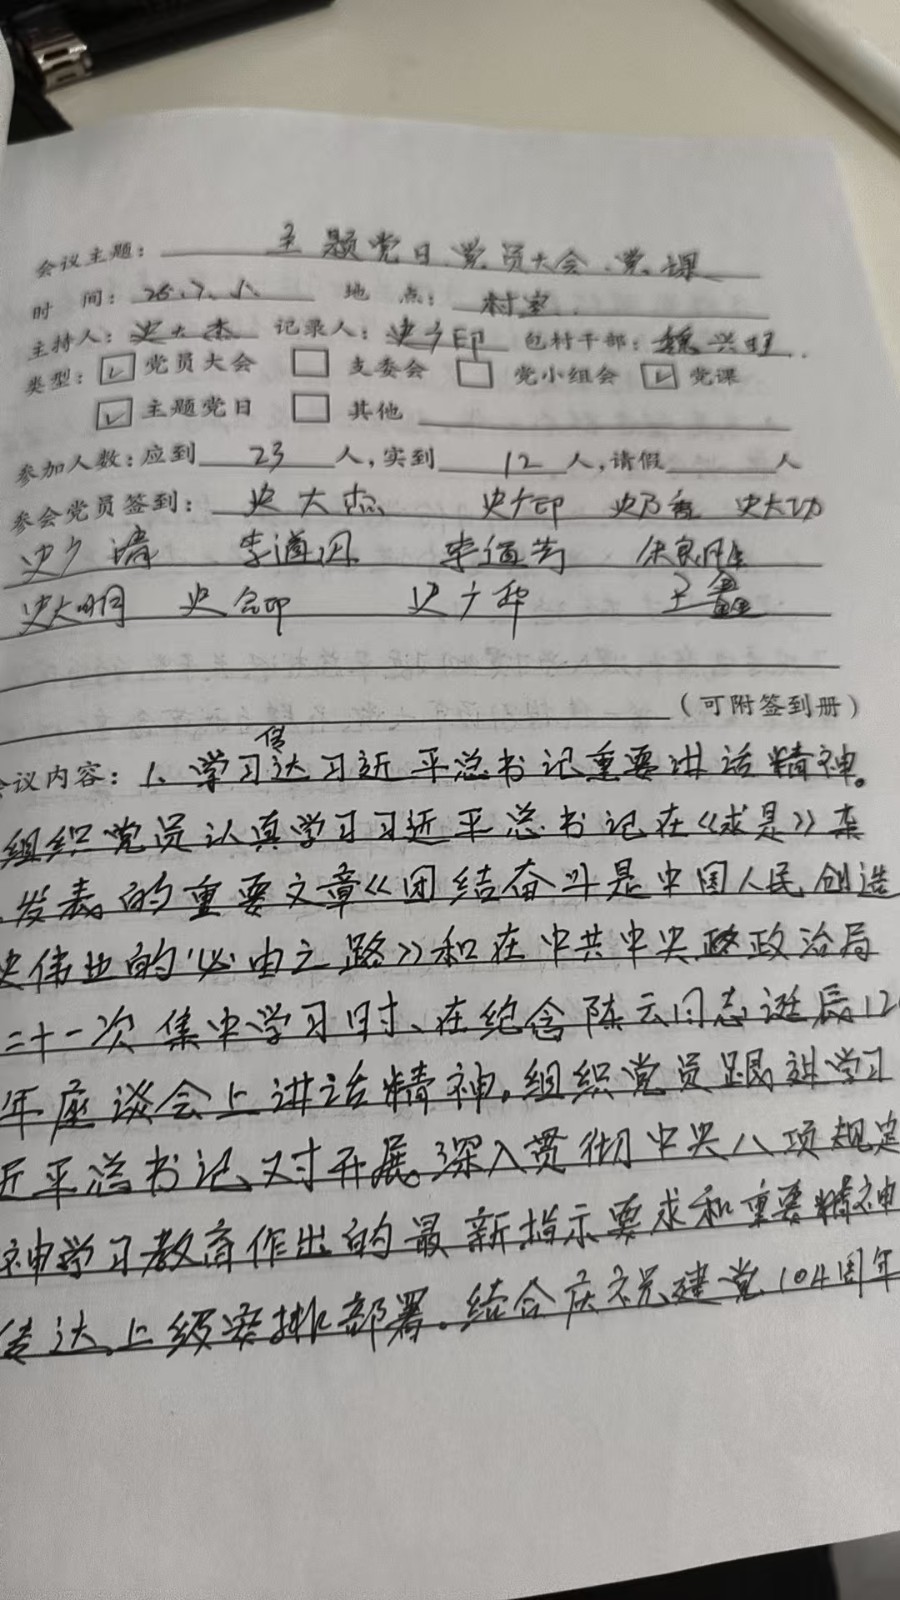 会议主题：主题党日、党员大会、党课
时 间：25.7. 地 点：村室
主持人：史大杰 记录人：史少印 包村干部：魏兴
类型：☑党员大会 □支委会 □党小组会 ☑党课
☑主题党日 □其他
参加人数：应到23人，实到12人，请假 人
参会党员签到：史大杰 史大功
史少清 李道
史大明 史 史少华 王鑫
（可附签到册）
会议内容：1、学习传达习近平总书记重要讲话精神。
组织党员认真学习习近平总书记在《求是》杂
发表的重要文章《团结奋斗是中国人民创造
史伟业的必由之路》和在中共中央政治局
二十一次集中学习时、在纪念陈云同志诞辰12
年座谈会上讲话精神。组织党员跟进学习
近平总书记对开展深入贯彻中央八项规定
神学习教育作出的最新指示要求和重要精神
传达上级安排部署。结合庆祝建党104周年